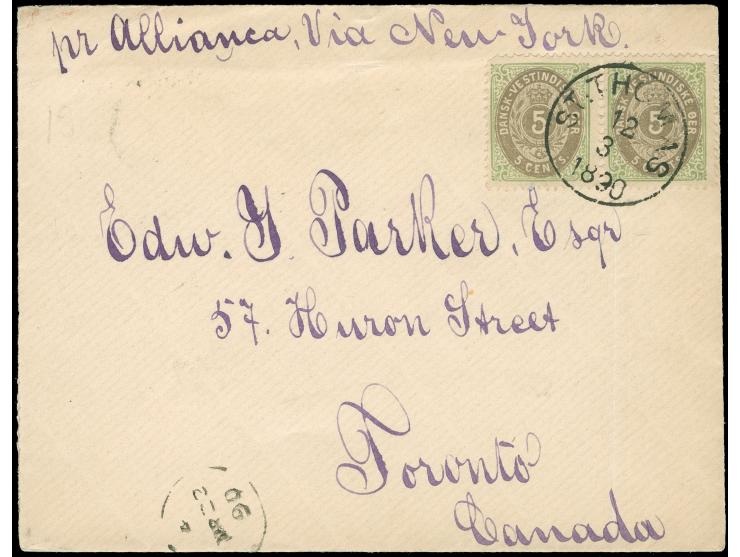 pr Allianca, Via New York.
DANSK-VESTINDISKE ØER
5
5 CENTS
DANSK-VESTINDISKE ØER
5
5 CENTS
ST. THOMAS
12
3
1890
Edw. Y. Parker, Esqr
57. Huron Street
Toronto
Canada
90